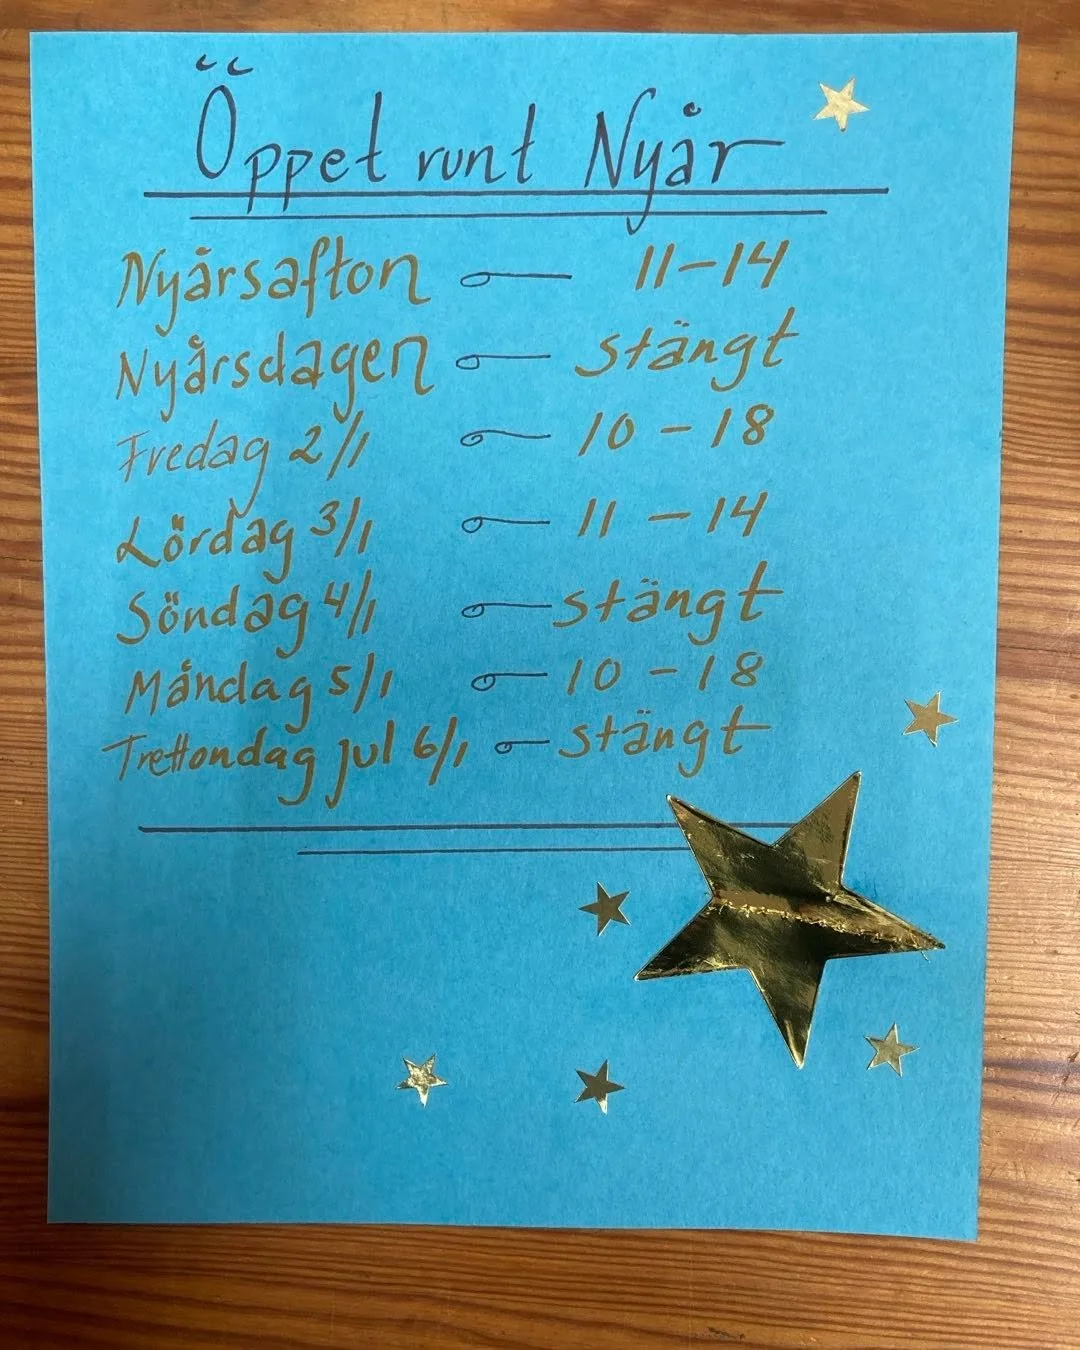 Öppet runt Nyår
Nyårsafton — 11-14
Nyårsdagen — stängt
Fredag 2/1 — 10-18
Lördag 3/1 — 11-14
Söndag 4/1 — stängt
Måndag 5/1 — 10-18
Trettondag jul 6/1 — stängt